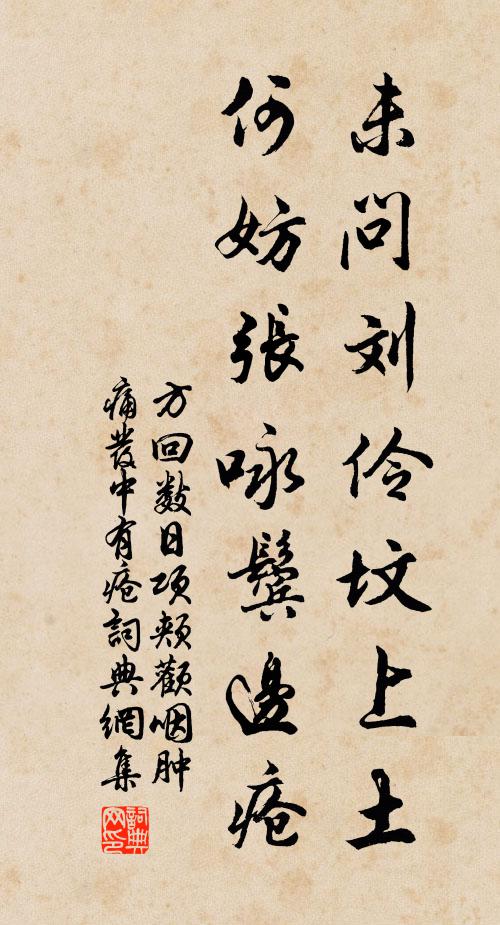 未问刘伶坟上土
何妨張咏鬓邊疮
方回数日项颊颧咽肿
痛發中有疮詞典網集
詞典网印